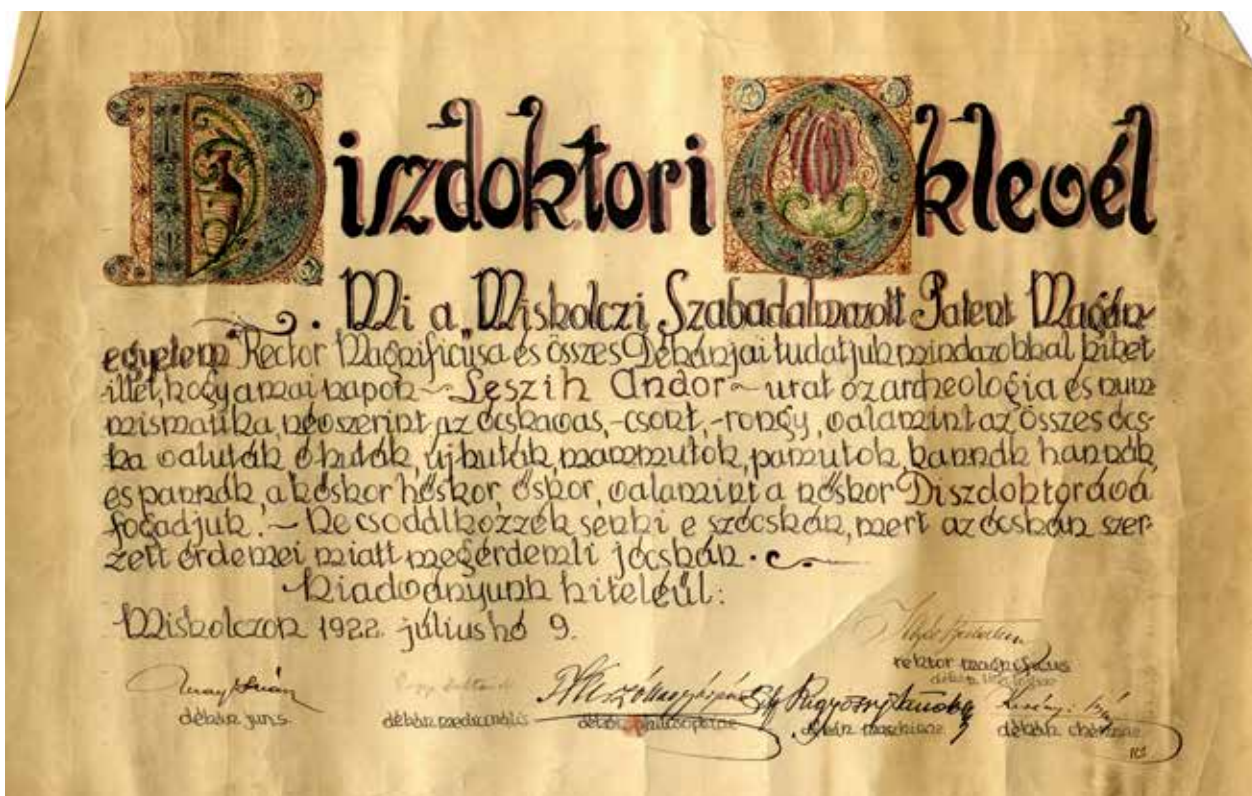 Diszdoktori Oklevél
Mi a „Miskolczi Szabadalmazott Patent Magán-
egyetem" Rector Magnificusa és összes Dékánjai tudatjuk mindazokkal kiket
illet, hogy a mai napon ~ Leszih Andor ~ urat az archeologia és num
mismatika, névszerint az ócskavas, -csont, -rongy, valamint az összes ócs-
ka valuták ókuták, újkuták, mammutok, pamutok, kannák hannák,
és pannák, a kőskor hőskor, őskor, valamint a nőskor Diszdoktorává
fogadjuk. ~ Ne csodálkozzék senki e szócskán, mert az ócskán szer-
zett érdemei miatt megérdemli jócskán.
Kiadványunk hiteléül:
Miskolczon 1922. július hó 9.
rektor magnificus
dékán juris.
dékán medicinális
dékán philosophiae
dékán
dékán